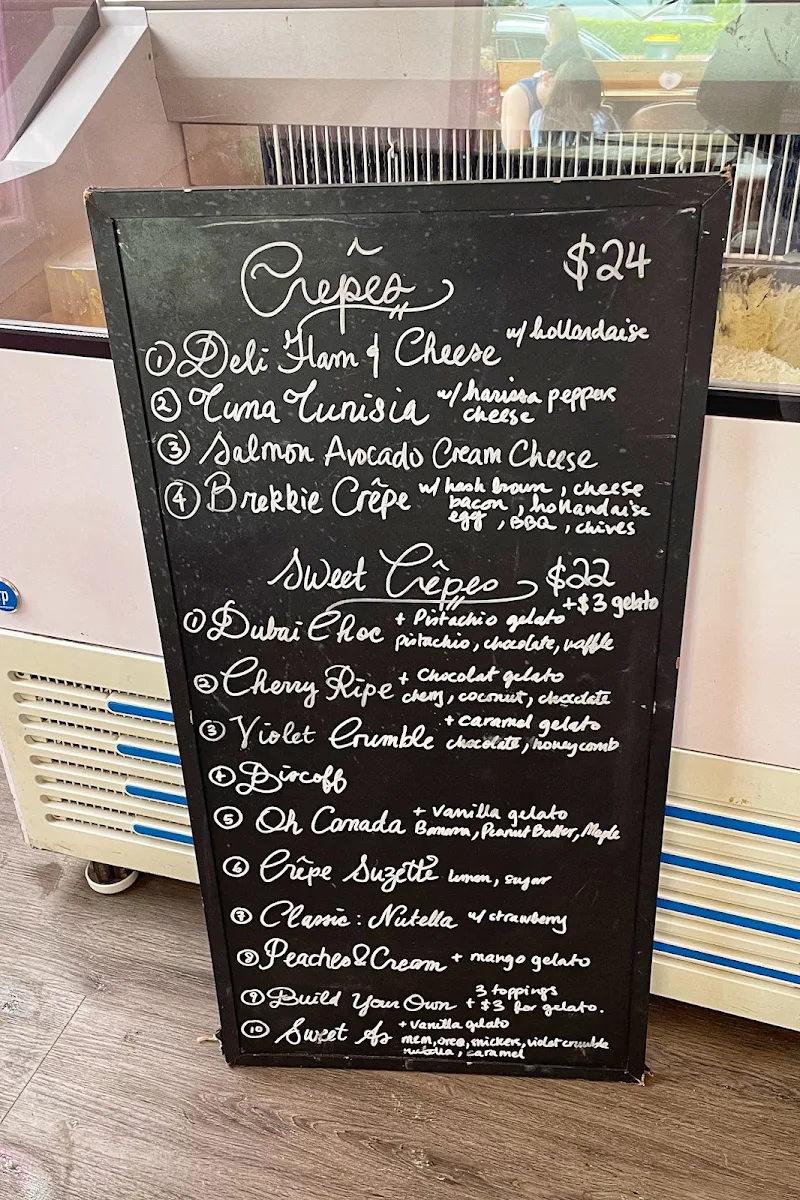 Crêpes $24
① Deli Ham & Cheese w/ hollandaise
② Tuna Tunisia w/ harissa peppers
cheese
③ Salmon Avocado Cream Cheese
④ Brekkie Crêpe w/ hash brown, cheese
bacon, hollandaise
egg, BBQ, chives
Sweet Crêpes $22
+$3 gelato
① Dubai Choc + Pistachio gelato
pistachio, chocolate, waffle
② Cherry Ripe + Chocolat gelato
cherry, coconut, chocolate
③ Violet Crumble + caramel gelato
chocolate, honeycomb
④ Biscoff
⑤ Oh Canada + Vanilla gelato
Banana, Peanut Butter, Maple
⑥ Crêpe Suzette lemon, sugar
⑦ Classic: Nutella w/ strawberry
⑧ Peaches & Cream + mango gelato
⑨ Build Your Own 3 toppings
+ $3 for gelato.
⑩ Sweet As + Vanilla gelato
m&m, oreo, snickers, violet crumble
nutella, caramel